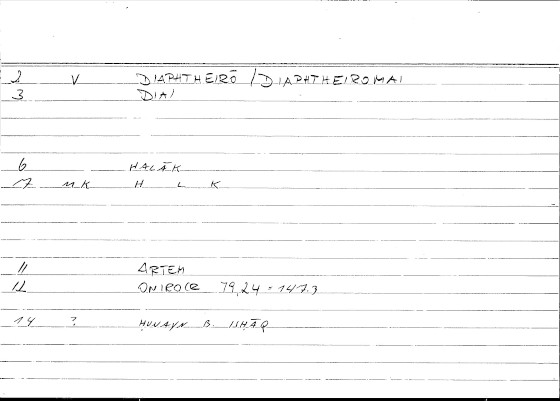 2 V DIAPHTHEIRŌ / DIAPHTHEIROMAI
3 DIA/
6 HALĀK
7 MK H L K
11 ARTEM
12 ONIROCR 79,24 = 147.3
14 ? ḤUNAYN B. ISḤĀQ